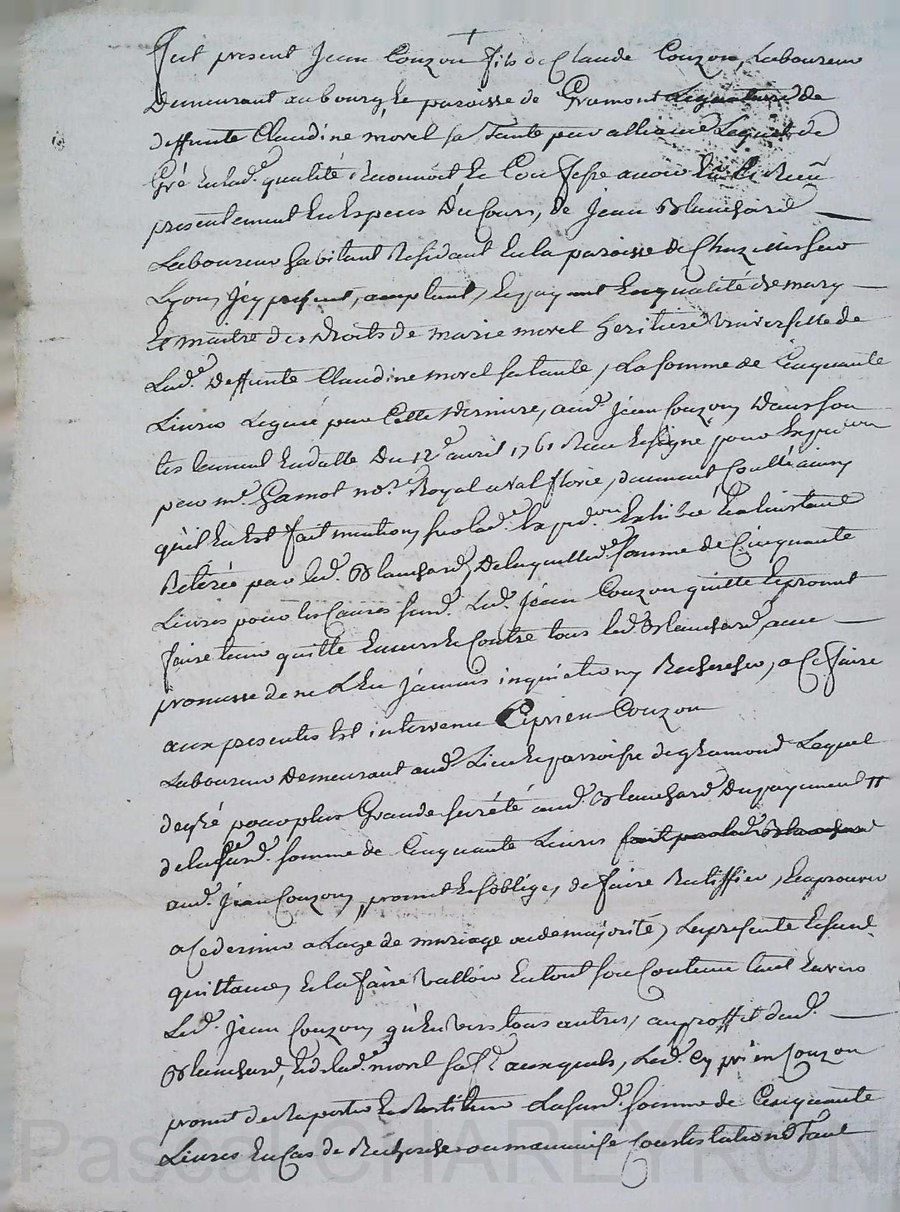 Fut present Jean Couzon fils de Claude Couzon Laboureur
Demeurant au bourg & paroisse de Gramont Legataire de
deffunte Claudine morel sa Tante par alliance Lequel de
Gré en lad.e qualité Reconnoit & Confesse avoir Reçu
presentement En Especes Du Cours, de Jean Blanchard
Laboureur habitant Residant En la paroisse de Chazelles sur
Lyon, Icy present, acceptant, & payant En qualité de mary
& maitre des droits de marie morel heritiere Universelle de
Lad.e Deffunte Claudine morel sa tante, La somme de Cinquante
Livres Leguée par Cette derniere, aud. Jean Couzon, Dans son
testament En datte Du 12e avril 1761 Reçu & signé pour Expedition
par me Gamot no.re Royal a Val fleurie, duement Controllé ainsy
qu'il En Est fait mention, sur lad.e Exped.on Exhibée & a l'instant
Retirée par led. Blanchard, De laquelle d.e somme de Cinquante
Livres pour les Causes susd. Led. Jean Couzon quitte & promet
faire tenir quitte Envers & Contre tous led. Blanchard, avec
promesse de ne L'En Jamais inquieter ny Rechercher, a Ce faire
aux presentes Est intervenu Ciprien Couzon
Laboureur Demeurant aud. Lieu & parroisse de gramond Lequel
de gré pour plus Grande sureté aud. Blanchard Du payement
de la susd. somme de Cinquante Livres fait par led. Blanchard
aud. Jean Couzon, promet & s'oblige, de faire Ratiffier, & aprouver
a Ce dernier a L'age de mariage ou de majorité, La presente & susd.
quittance, & la faire Valloir En tout son Contenu tant Envers
Led. Jean Couzon, qu'Envers tous autres, au proffit dud.
Blanchard, & de lad.e morel sa fe. auxquels, Led. Cyprien Couzon
promet de Raporter & Restituer La susd. somme de Cinquante
Livres En Cas de Recherche ou mauvaise Contestation Tant
Pascal CHAREYRON